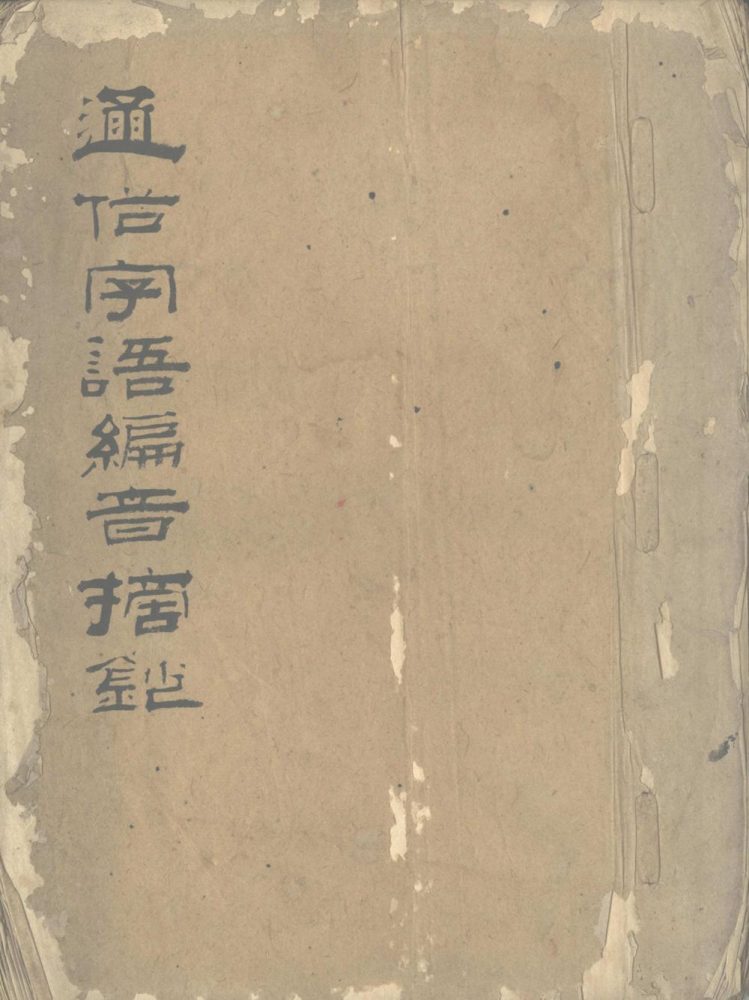 通信字語編音摘鈔